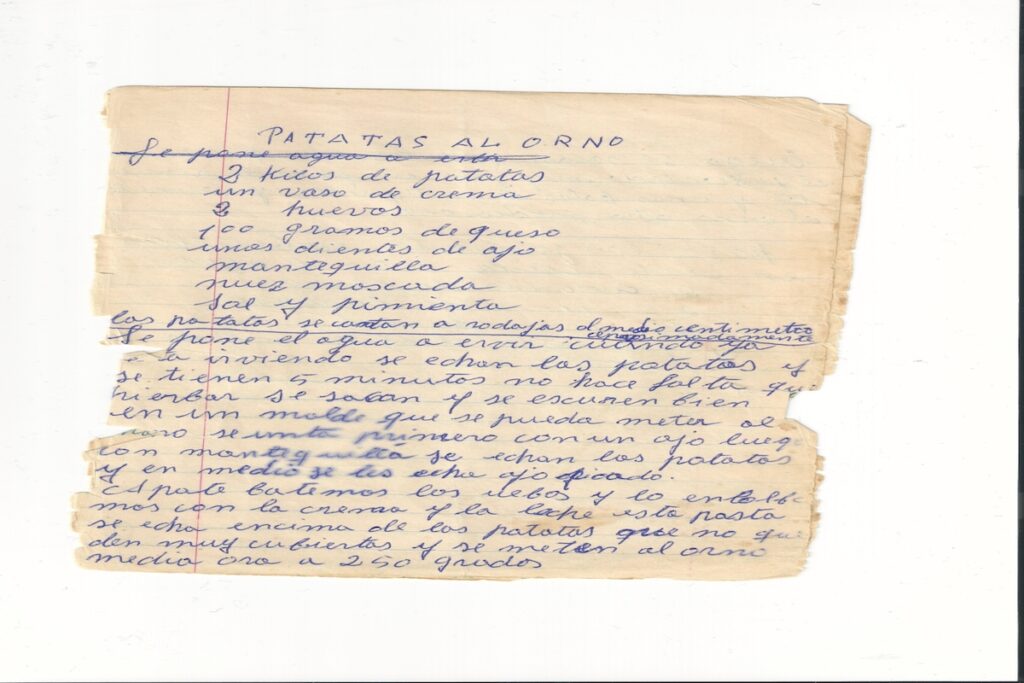 PATATAS AL ORNO
Se pone agua a esta
2 Kilos de patatas
un vaso de crema
2 huevos
100 gramos de queso
unos dientes de ajo
mantequilla
nuez moscada
sal y pimienta
las patatas se cortan a rodajas d medio centimetro
aproximadamente
Se pone el agua a ervir cuando ya
irviendo se echan las patatas y
se tienen 5 minutos no hace falta que
hierbar se sacan y se escuren bien
en un molde que se pueda meter al
se unta primero con un ajo lueg
con mantequilla se echan las patatas
y en medio se les echa ajo picado.
Apate batemos los uebos y lo
mos con la crema y la leche esta pasta
se echa encima de las patatas que no que
den muy cubiertas y se meten al orno
media ora a 250 grados